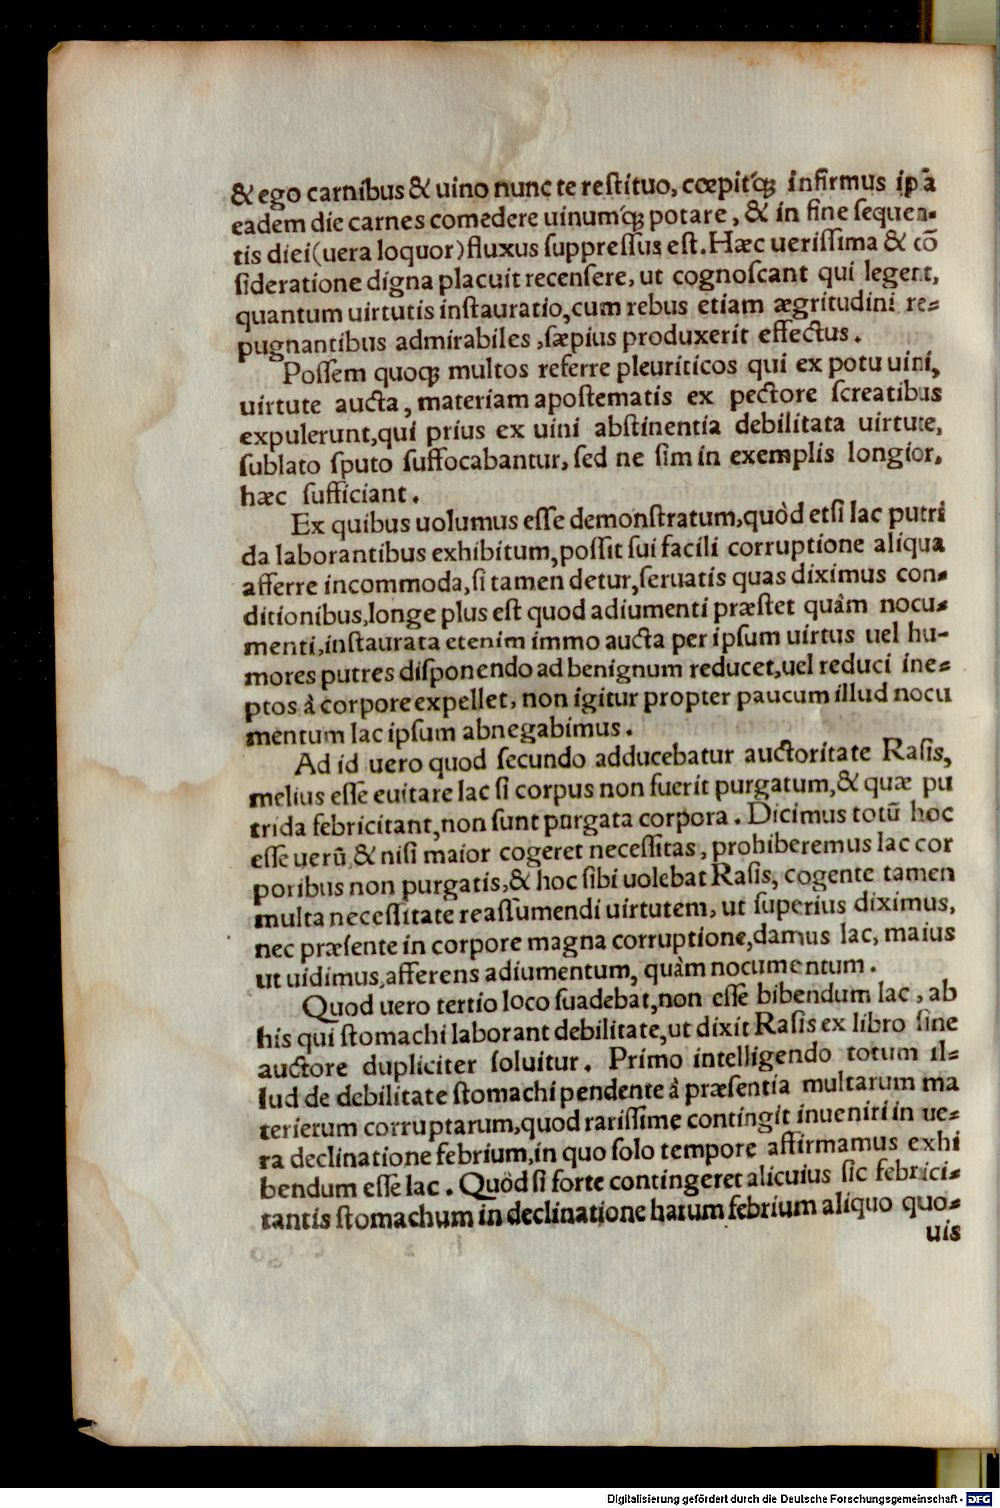 & ego carnibus & uino nunc te reſtituo, cœpitq́ꝫ infirmus ipā
eadem die carnes comedere uinumq́ꝫ potare, & in fine ſequen-
tis diei (uera loquor) fluxus ſuppreſſus eſt. Hæc ueriſſima & cō
ſideratione digna placuit recenſere, ut cognoſcant qui legent,
quantum uirtutis inſtauratio, cum rebus etiam ægritudini re-
pugnantibus admirabiles, ſæpius produxerit effectus.
Poſſem quoqꝫ multos referre pleuriticos qui ex potu uini,
uirtute aucta, materiam apoſtematis ex pectore ſcreatibus
expulerunt, qui prius ex uini abſtinentia debilitata uirtute,
ſublato ſputo ſuffocabantur, ſed ne ſim in exemplis longior,
hæc ſufficiant.
Ex quibus uolumus eſſe demonſtratum, quòd etſi lac putri
da laborantibus exhibitum, poſſit ſui facili corruptione aliqua
afferre incommoda, ſi tamen detur, ſeruatis quas diximus con-
ditionibus, longe plus eſt quod adiumenti præſtet quàm nocu-
menti, inſtaurata etenim immo aucta per ipſum uirtus uel hu-
mores putres diſponendo ad benignum reducet, uel reduci ine-
ptos à corpore expellet, non igitur propter paucum illud nocu
mentum lac ipſum abnegabimus.
Ad id uero quod ſecundo adducebatur auctoritate Raſis,
melius eſſe euitare lac ſi corpus non fuerit purgatum, & quæ pu
trida febricitant, non ſunt purgata corpora. Dicimus totū hoc
eſſe uerū, & niſi maior cogeret neceſſitas, prohiberemus lac cor
poribus non purgatis, & hoc ſibi uolebat Raſis, cogente tamen
multa neceſſitate reaſſumendi uirtutem, ut ſuperius diximus,
nec præſente in corpore magna corruptione, damus lac, maius
ut uidimus, afferens adiumentum, quàm nocumentum.
Quod uero tertio loco ſuadebat, non eſſe bibendum lac, ab
his qui ſtomachi laborant debilitate, ut dixit Raſis ex libro ſine
auctore dupliciter ſoluitur. Primo intelligendo totum il-
lud de debilitate ſtomachi pendente à præſentia multarum ma
terierum corruptarum, quod rariſſime contingit inueniri in ue-
ra declinatione febrium, in quo ſolo tempore affirmamus exhi
bendum eſſe lac. Quòd ſi forte contingeret alicuius ſic febrici-
tantis ſtomachum in declinatione harum febrium aliquo quo-
uis
Digitalisierung gefördert durch die Deutsche Forschungsgemeinschaft - DFG